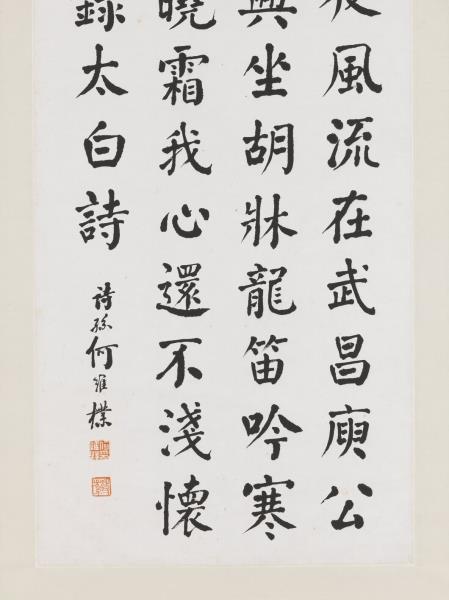 夜風流在武昌庾公
興坐胡牀龍笛吟寒
曉霜我心還不淺懷
錄太白詩
詩孫何維樸